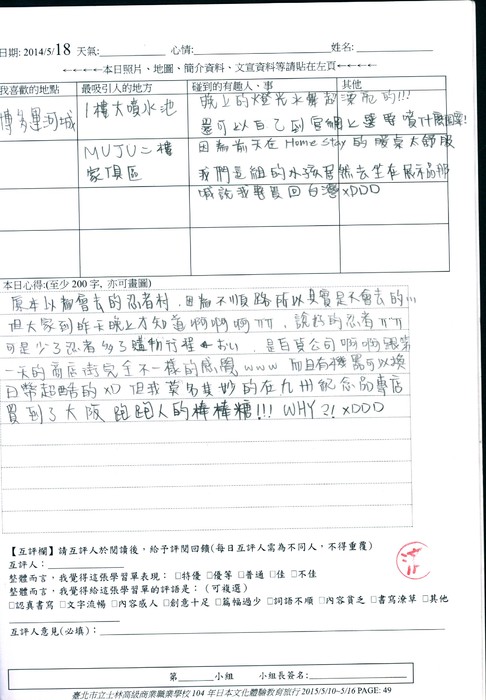 日期: 2014/5/18 天氣: 心情: 姓名:
←←←←本日照片、地圖、簡介資料、文宣資料等請貼在左頁←←←←
我喜歡的地點 最吸引人的地方 碰到的有趣人、事 其他
博多運河城 1樓大噴水池 晚上的燈光水舞超漂亮的!!!
還可以自己到官網上選時噴什麼圖案!
MUJI二樓 因為前天在Home stay的
家俱區 我們是組的 去坐在展示品那
喊說我要買回台灣XDDD
本日心得:(至少 200 字, 亦可畫圖)
原本以為會去的忍者村,因為不順路所以其實是不會去的...
但大家到昨天晚上才知道啊啊啊ㅠㅠ,說好的忍者ㅠㅠ
可是少了忍者多了購物行程←おい,是百貨公司啊啊跟第
一天的商店街完全不一樣的感覺www 而且有機器可以換
日幣超酷的XD 但我莫名其妙的在九州紀念品專店
買到了大阪跑跑人的棒棒糖!!! WHY?! XDDD
【互評欄】請互評人於閱讀後,給予評閱回饋(每日互評人需為不同人,不得重覆)
互評人:
整體而言,我覺得這張學習單表現: □特優 □優等 □普通 □佳 □不佳
整體而言,我覺得給這張學習單的評語是:(可複選)
□認真書寫 □文字流暢 □內容感人 □創意十足 □篇幅過少 □詞語不順 □內容貧乏 □書寫潦草 □其他
互評人意見(必填):
第 小組 小組長簽名:
臺北市立士林高級商業職業學校 104 年日本文化體驗教育旅行 2015/5/10~5/16 PAGE: 49